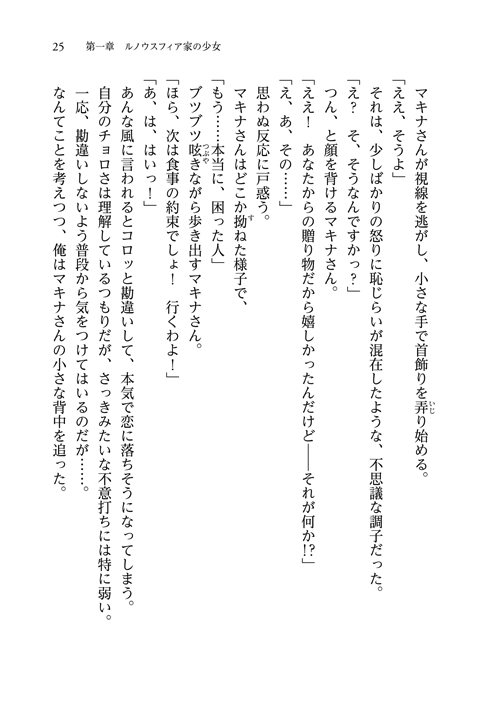 25　第一章　ルノウスフィア家の少女
マキナさんが視線を逃がし、小さな手で首飾りを弄り始める。
「ええ、そうよ」
それは、少しばかりの怒りに恥じらいが混在したような、不思議な調子だった。
「え？　そ、そうなんですかっ？」
つん、と顔を背けるマキナさん。
「ええ！　あなたからの贈り物だから嬉しかったんだけど――それが何か!?」
「え、あ、その……」
思わぬ反応に戸惑う。
マキナさんはどこか拗ねた様子で、
「もう……本当に、困った人」
ブツブツ呟きながら歩き出すマキナさん。
「ほら、次は食事の約束でしょ！　行くわよ！」
「あ、は、はいっ！」
あんな風に言われるとコロッと勘違いして、本気で恋に落ちそうになってしまう。
自分のチョロさは理解しているつもりだが、さっきみたいな不意打ちには特に弱い。
一応、勘違いしないよう普段から気をつけてはいるのだが……。
なんてことを考えつつ、俺はマキナさんの小さな背中を追った。